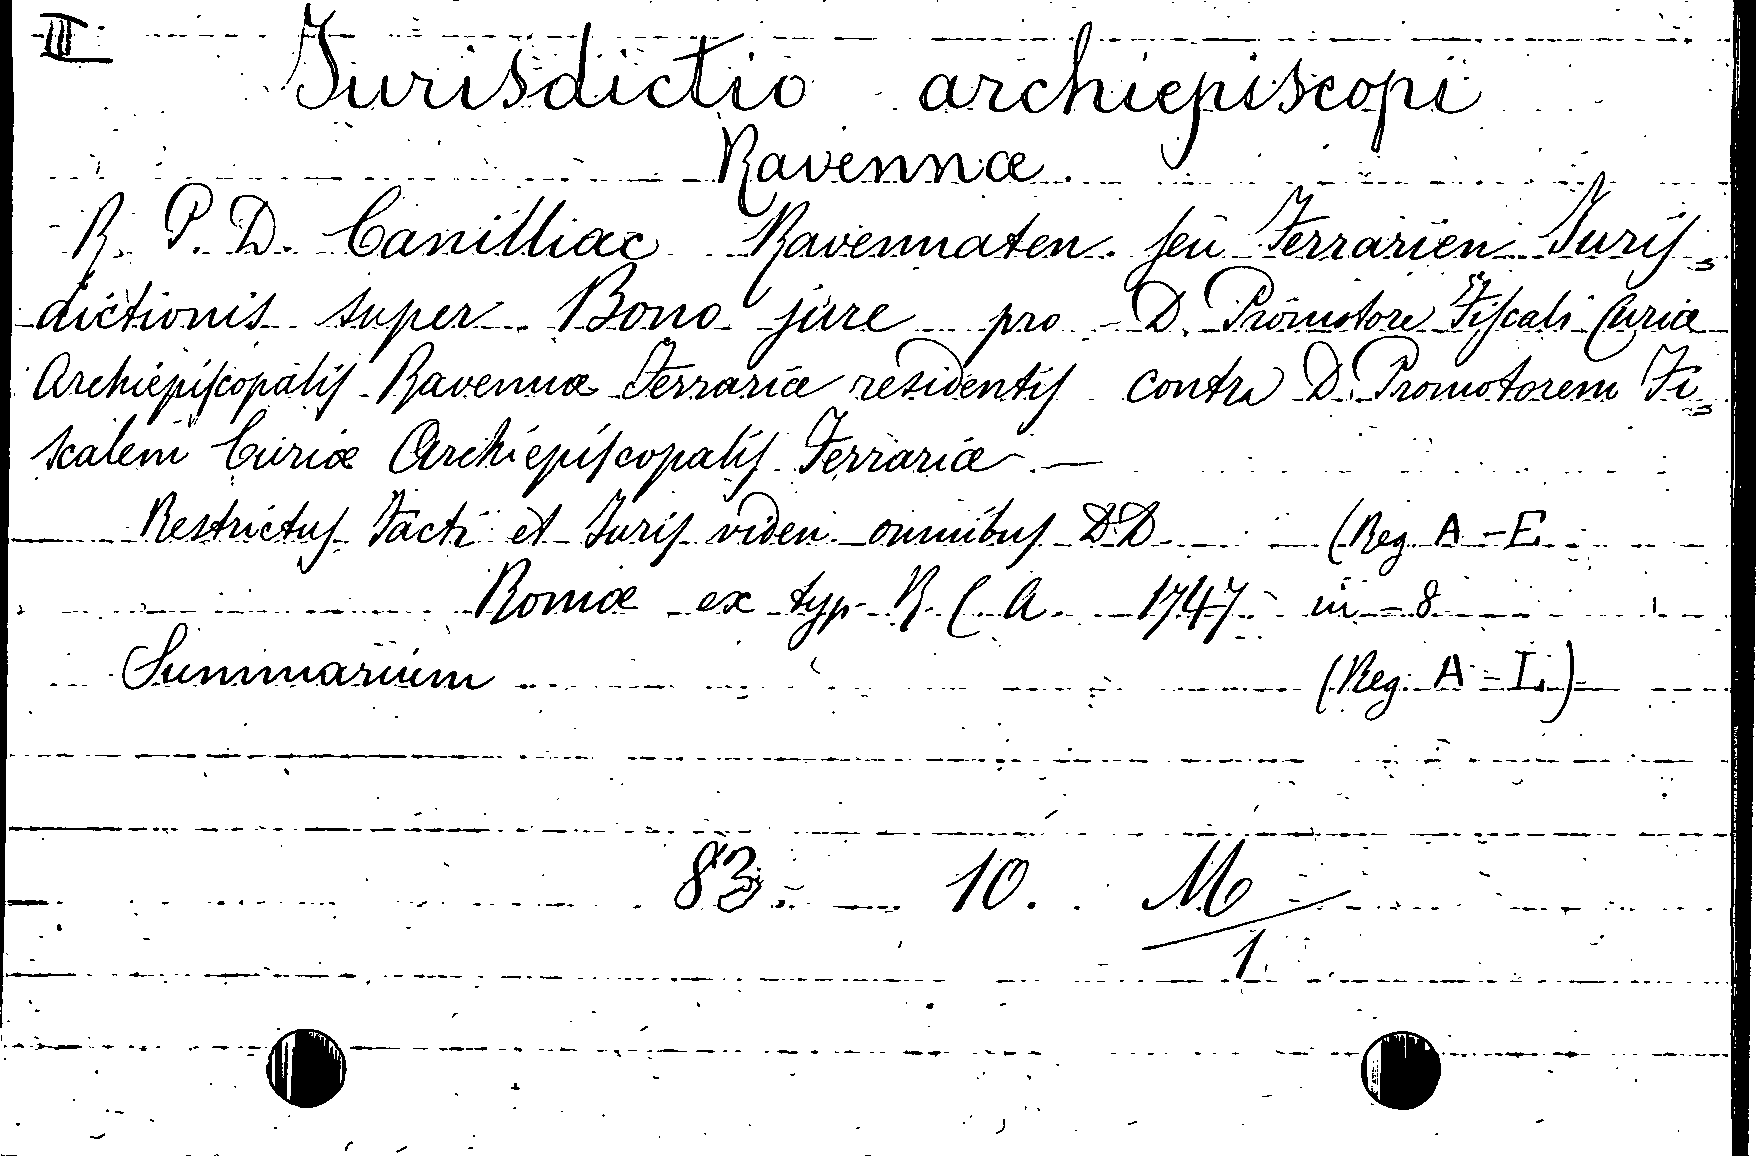 III
Jurisdictio archiepiscopi
Ravennæ.
R. P. D. Canilliac Ravennaten. seu Ferrarien Juris=
dictionis super Bono jure pro D. Promotore Fiscali Curiæ
Archiepiscopalis Ravennæ Ferrariæ residentis contra D. Promotorem Fi=
scalem Curiæ Archiepiscopalis Ferrariæ. —
Restrictus Facti et Juris viden omnibus DD (Reg A - E
Romæ ex typ. R. C. A. 1747 in-8
Summarium (Reg. A - I.)
83. — 10. M
1.